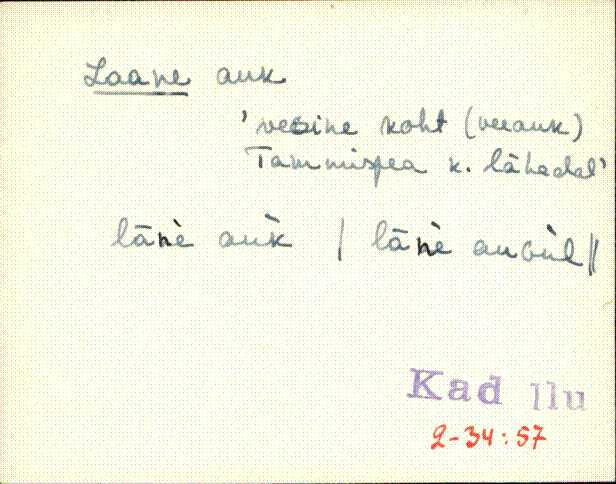 Laane auk
'vesine koht (veeauk)
Tammispea k. lähedal'
lāǹè aùk | lāǹè
Kad Ilu
2-34:57